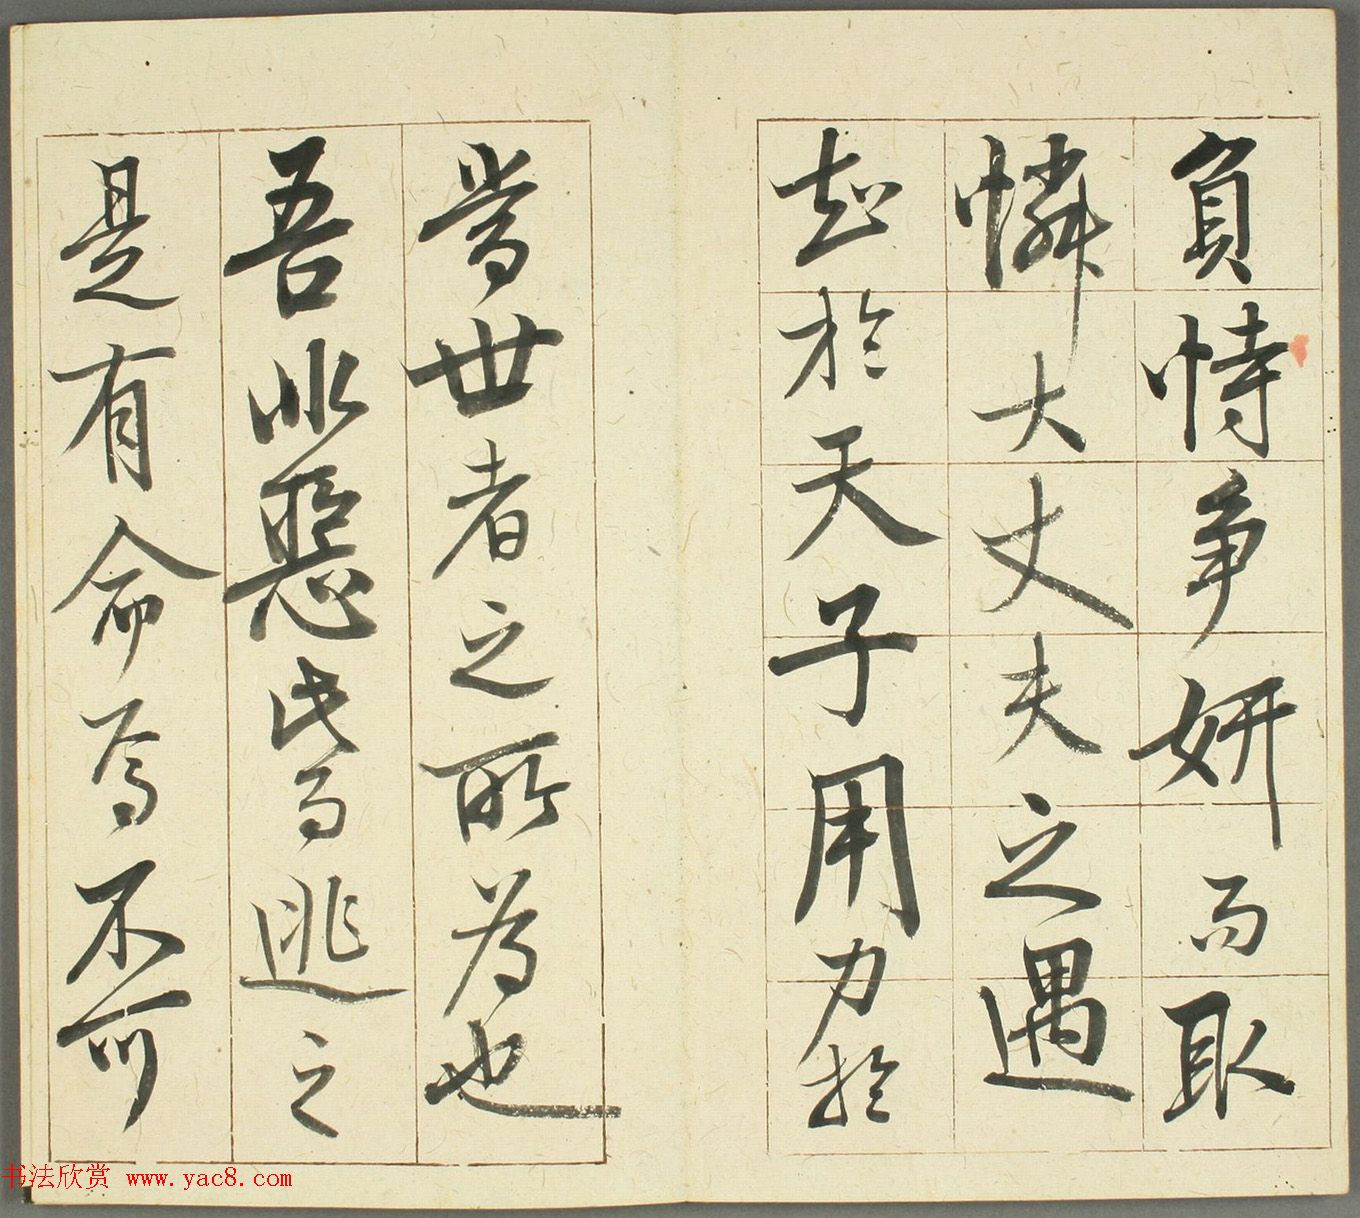 負恃爭妍而取
憐大丈夫之遇
知於天子用力於
當世者之所為也
吾非惡此而逃之
是有命焉不可
书法欣赏 www.yac8.com